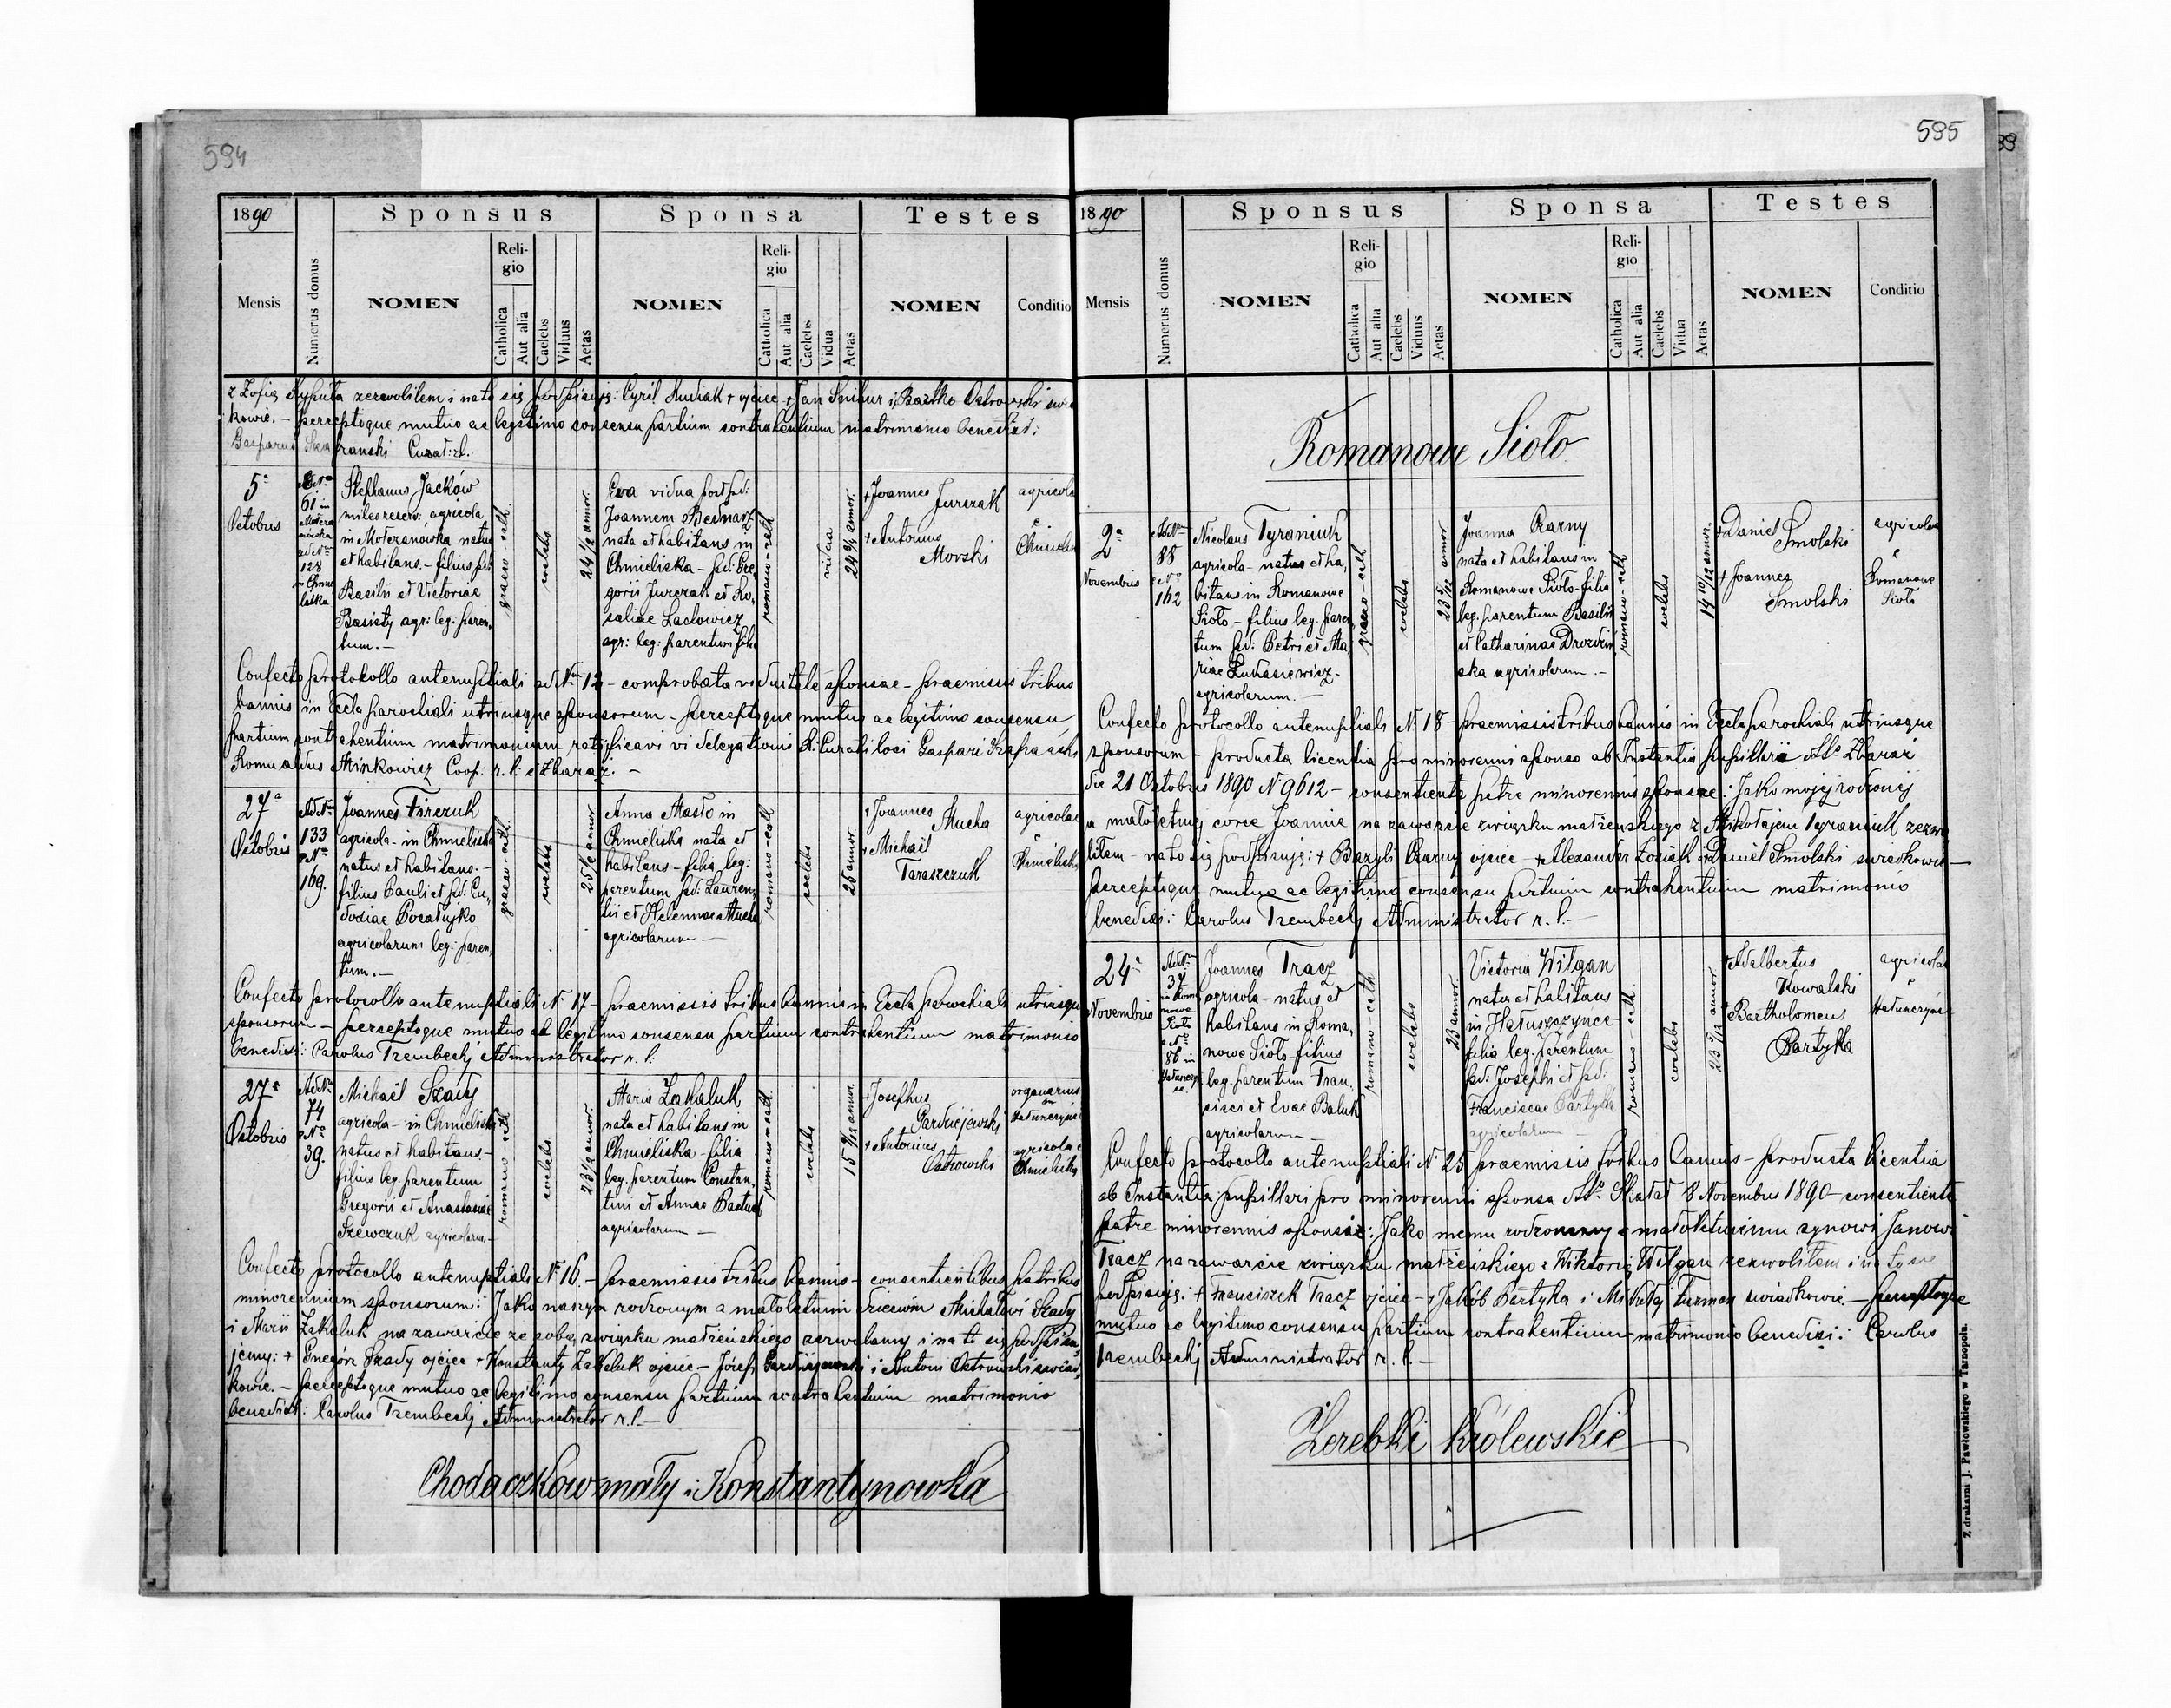 594
1890
Sponsus
Sponsa
Testes
Mensis
Numerus domus
NOMEN
Religio
Catholica
Aut alia
Caelebs
Viduus
Aetas
NOMEN
Religio
Catholica
Aut alia
Caelebs
Vidua
Aetas
NOMEN
Conditio
z Zofią zezwoliłem i na to się podpisuję: Cyryl Hudiak + ojciec + Jan i Bartko Ostrowski
kowie. – perceptoque mutuo ac legitimo consensu partium contrahentium matrimonio benedixi:
Gasparus Curat: r. l.
5ª
Octobris
61 in
128
Stephanus Jackow
miles reserv: agricola
in Mołczanowka natus
et habitans. – filius
Basilii et Victoriae
Basisty agr: leg: paren,
tum. –
graeco-cath
caelebs
24 1/2 annor.
Eva vidua post
Joannem Bednarz
nata et habitans in
Chmieliska – Gre
gorii Jurczak et Ro,
saliae Lachowicz
agr: leg: parentum filia
romano-cath
vidua
+ Joannes
Jurczak
+ Antonius
Morski
agricola
Confecto protokollo antenuptiali ad Nrm 12 – comprobata viduitate sponsae – praemissis tribus
bannis in Eccla parochiali utriusque sponsorum – perceptoque mutuo ac legitimo consensu
partium contrahentium matrimonium ratificavi vi delegationis R. Curati loci Gaspari
Romualdus Minkowicz Coop: r. l. e Zbaraż. –
27ª
Octobris
133
169.
Joannes Firczuk
agricola – in Chmieliska
natus et habitans. –
filius Pauli et Eu,
doxiae Pocałujko
agricolarum leg: paren,
tum. –
graeco-cath
caelebs
Anna Masło in
Chmieliska nata et
habitans – filia leg:
parentum Lauren
tii et Helennae Mucha
agricolarum –
romano-cath
caelebs
26 annor
+ Joannes
Mucha
+ Michael
Taraszczuk
agricolae
Chmieliska
Confecto protocollo antenuptiali N. 17 – praemissis tribus bannis in Eccla parochiali utriusque
sponsorum – perceptoque mutuo ac legitimo consensu partium contrahentium matrimonio
benedixi: Carolus Trembecki Administrator r. l.
27ª
Octobris
74
39.
Michael Szady
agricola – in Chmieliska
natus et habitans –
filius leg. parentum
Gregorii et Anastasiae
Szewczuk agricolarum –
romano-cath
caelebs
23 1/2 annor.
Maria Zakaluk
nata et habitans in
Chmieliska – filia
leg. parentum Constan,
tini et Annae
agricolarum –
romano-cath
caelebs
+ Josephus
+ Antonius
Ostrowski
organarius
agricola
Chmieliska
Confecto protocollo antenuptiali N. 16 – praemissis tribus bannis – consentientibus patribus
minorennium sponsorum: Jako naszym rodzonym a małoletnim dzieciom Michałowi Szady
i Marii Zakaluk na zawarcie ze sobą związku małżeńskiego zezwalamy i na to się podpisu,
jemy: + Gregórz Szady ojciec + Konstanty Zakaluk ojciec – Józef i Antoni Ostrowski świad,
kowie. – perceptoque mutuo ac legitimo consensu partium contrahentium – matrimonio
benedixi: Carolus Trembecki Administrator r. l. –
Chodaczkow mały i Konstantynowka
595
1890
Sponsus
Sponsa
Testes
Mensis
Numerus domus
NOMEN
Religio
Catholica
Aut alia
Caelebs
Viduus
Aetas
NOMEN
Religio
Catholica
Aut alia
Caelebs
Vidua
Aetas
NOMEN
Conditio
Romanowe Sioło
2ª
Novembris
88
162
Nicolaus Tyraniuk
agricola – natus et ha,
bitans in Romanowe
Sioło – filius leg. paren
tum Petri et Ma,
riae Łukasiewicz –
agricolarum. –
graeco-cath
caelebs
23 5/12 annor
Joanna Czarny
nata et habitans in
Romanowe Sioło – filia
leg. parentum Basilii
et Catharinae Drozdiń
ska agricolarum. –
romano-cath
caelebs
14 10/12 annor.
+ Daniel
Smolski
+ Joannes
Smolski
agricolae
Romanowe
Sioło
Confecto protocollo antenuptiali N. 18 – praemissis tribus bannis in Eccla parochiali utriusque
sponsorum – producta licentia pro minorenni sponso ab Instantia pupillari Zbaraż
die 21 Octobris 1890 N 9612 – consentiente patre minorennis sponsae: Jako mojej rodzonej
a małoletniej córce Joannie na zawarcie związku małżeńskiego z Mikołajem Tyraniuk zezwo
liłem – na to się podpisuję: + Bazyli Czarny ojciec + Alexander + Daniel Smolski świadkowie –
perceptoque mutuo ac legitimo consensu partium contrahentium matrimonio
benedixi: Carolus Trembecki Administrator r. l. –
24ª
Novembris
37
86 in
Joannes Tracz
agricola – natus et
habitans in Roma,
nowe Sioło – filius
leg. parentum Fran,
cisci et Evae Baluk
agricolarum –
romano-cath
caelebs
23 annor
Victoria Witgan
nata et habitans
in Hałuszczynce –
filia leg. parentum
Josephi et
Franciscae Partyka
agricolarum –
romano-cath
caelebs
23 5/12 annor
+ Adalbertus
Kowalski
+ Bartholomeus
Partyka
agricolae
Confecto protocollo antenuptiali N. 25 praemissis tribus bannis – producta licentia
ab Instantia pupillari pro minorenni sponso Skałat 8 Novembris 1890 – consentiente
patre minorennis sponsi: Jako memu rodzonemu a małoletniemu synowi Janowi
Tracz na zawarcie związku małżeńskiego z Wiktorią Witgan zezwoliłem i na to się
podpisuję: + Franciszek Tracz ojciec – + Jakób Partyka i Mikołaj Furman świadkowie. – perceptoque
mutuo ac legitimo consensu partium contrahentium matrimonio benedixi: Carolus
Trembecki Administrator r. l. –
Zerebki Królewskie
Z drukarni J. Pawłowskiego w Tarnopolu.